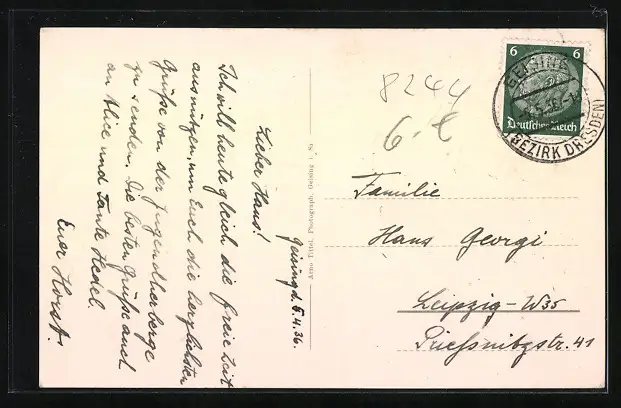 Geising d. 5.4.36.
Lieber Hans!
Ich will heute gleich die freie Zeit
ausnützen, um Euch die herzlichsten
Grüße von der Jugendherberge
zu senden. Die besten Grüße auch
an Alice und Tante Hedel.
Euer Horst.
Arno Tittel, Photograph, Geising i. Sa
8244
6.-
6 6
Deutsches Reich
GEISING
(BEZIRK DRESDEN)
Familie
Hans Georgi
Leipzig-W35
Prießnitzstr. 41